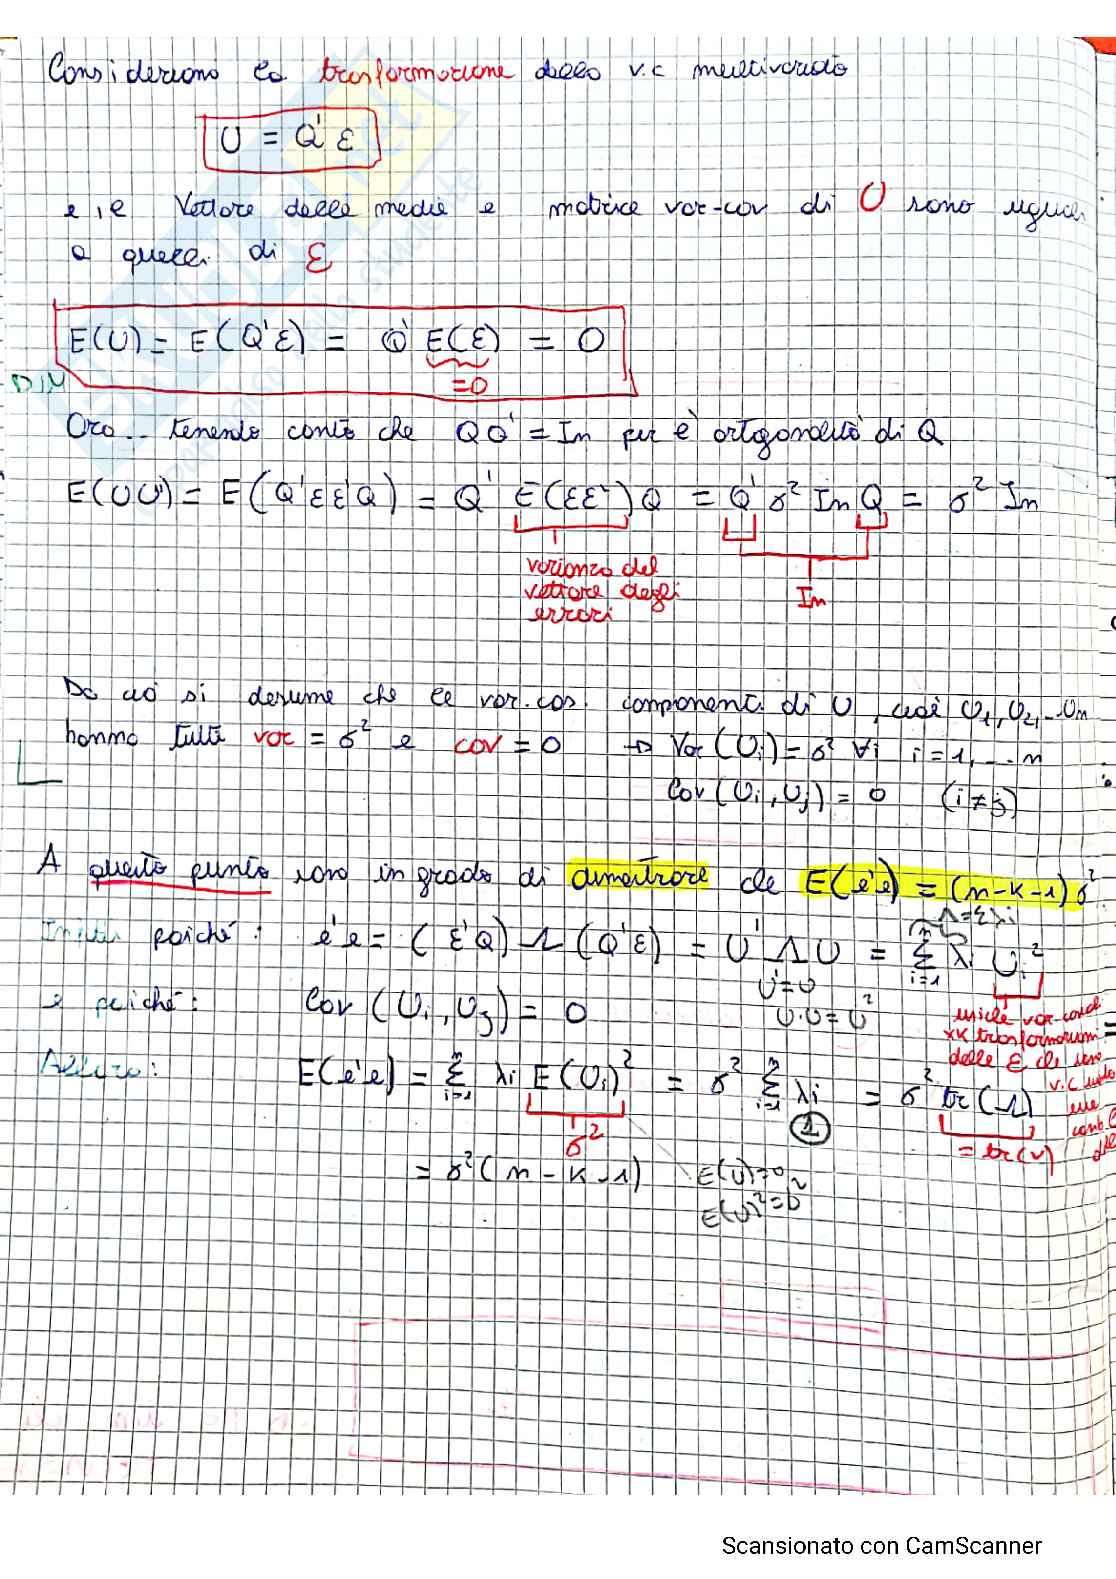 Consideriamo la trasformazione della v.c multivariata
U = Q' ε
e il Vettore delle medie e matrice var-cov di U sono uguali
a quelli di ε
E(U) = E(Q'ε) = Q' E(ε) = 0
=0
DIM
Ora.. tenendo conto che QQ' = In per l'ortogonalità di Q
E(UU') = E(Q'εε'Q) = Q' E(εε')Q = Q' σ² In Q = σ² In
varianza del
vettore degli
errori
In
Da ciò si desume che le var. cas. componenti di U, cioè U1, U2, ... Un
hanno tutti var = σ² e cov = 0 → Var(Ui) = σ² ∀i i = 1, ... n
Cov(Ui, Uj) = 0 (i ≠ j)
A questo punto sono in grado di dimostrare che E(e'e) = (n-k-1)σ²
Λ=Σλi
Infatti poiché: e'e = (ε'Q) Λ (Q'ε) = U' Λ U = Σ i=1 n λi Ui²
U'=U
U·U = U²
e poiché: Cov(Ui, Uj) = 0
delle ε che sono
Allora: E(e'e) = Σ i=1 n λi E(Ui)² = σ² Σ i=1 n λi = σ² tr(Λ)
σ²
1
= tr(V)
= σ²(n-k-1)
E(U)=0
E(U)²=0
Scansionato con CamScanner